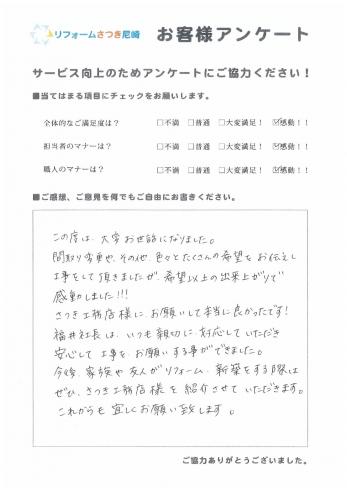 リフォームさつき尼崎 お客様アンケート
サービス向上のためアンケートにご協力ください！
■当てはまる項目にチェックをお願いします。
全体的なご満足度は？ □不満 □普通 □大変満足！ ☑感動！！
担当者のマナーは？ □不満 □普通 □大変満足！ ☑感動！！
職人のマナーは？ □不満 □普通 □大変満足！ ☑感動！！
■ご感想、ご意見を何でもご自由にお書きください。
この度は、大変お世話になりました。
間取り変更や、その他、色々とたくさんの希望をお伝えし
工事をして頂きましたが、希望以上の出来上がりで
感動しました!!!
さつき工務店様に、お願いして本当に良かったです!
福井社長は、いつも親切に対応していただき
安心して工事をお願いする事ができました。
今後、家族や友人がリフォーム、新築をする際は
ぜひ、さつき工務店様を紹介させていただきます。
これからも宜しくお願い致します。
ご協力ありがとうございました。